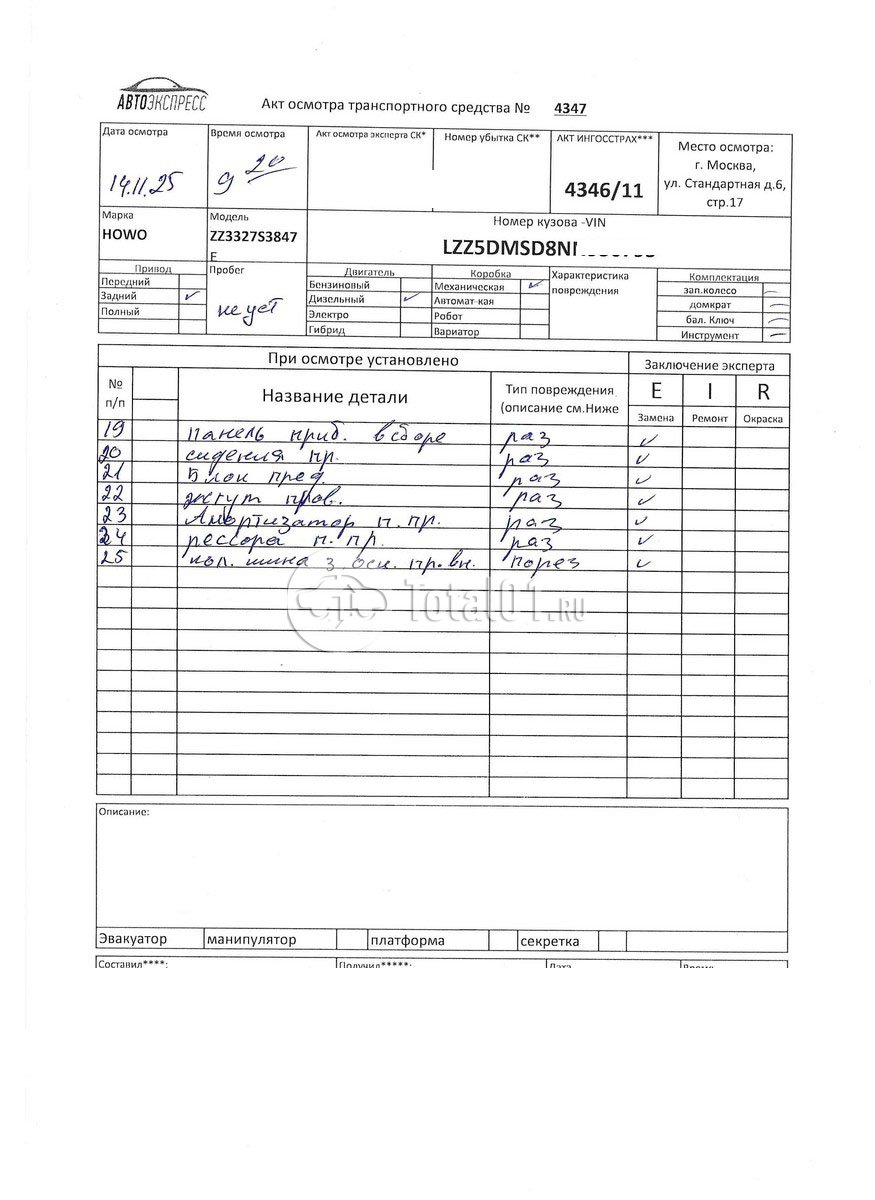 АВТОЭКСПРЕСС
Акт осмотра транспортного средства № 4347
Дата осмотра
14.11.25
Время осмотра
9 20
Акт осмотра эксперта СК*
Номер убытка СК**
АКТ ИНГОССТРАХ***
4346/11
Место осмотра:
г. Москва,
ул. Стандартная д.6,
стр.17
Марка
HOWO
Модель
ZZ3327S3847
E
Номер кузова -VIN
LZZ5DMSD8N
Привод
Передний
Задний ✓
Полный
Пробег
не уст
Двигатель
Бензиновый
Дизельный ✓
Электро
Гибрид
Коробка
Механическая ✓
Автомат-кая
Робот
Вариатор
Характеристика
повреждения
Комплектация
зап.колесо —
домкрат —
бал. Ключ —
Инструмент —
При осмотре установлено
Заключение эксперта
№
п/п
Название детали
Тип повреждения
(описание см.Ниже
E I R
Замена Ремонт Окраска
19 панель приб. в сборе раз ✓
20 сидения пр. раз ✓
21 Блок пред. раз ✓
22 жгут пров. раз ✓
23 Амортизатор п. пр. раз ✓
24 рессора п. пр. раз ✓
25 кол. шина з. оси. пр. вн. порез ✓
Total01.RU
Описание:
Эвакуатор манипулятор платформа секретка
Составил****: Получил*****: Дата Время